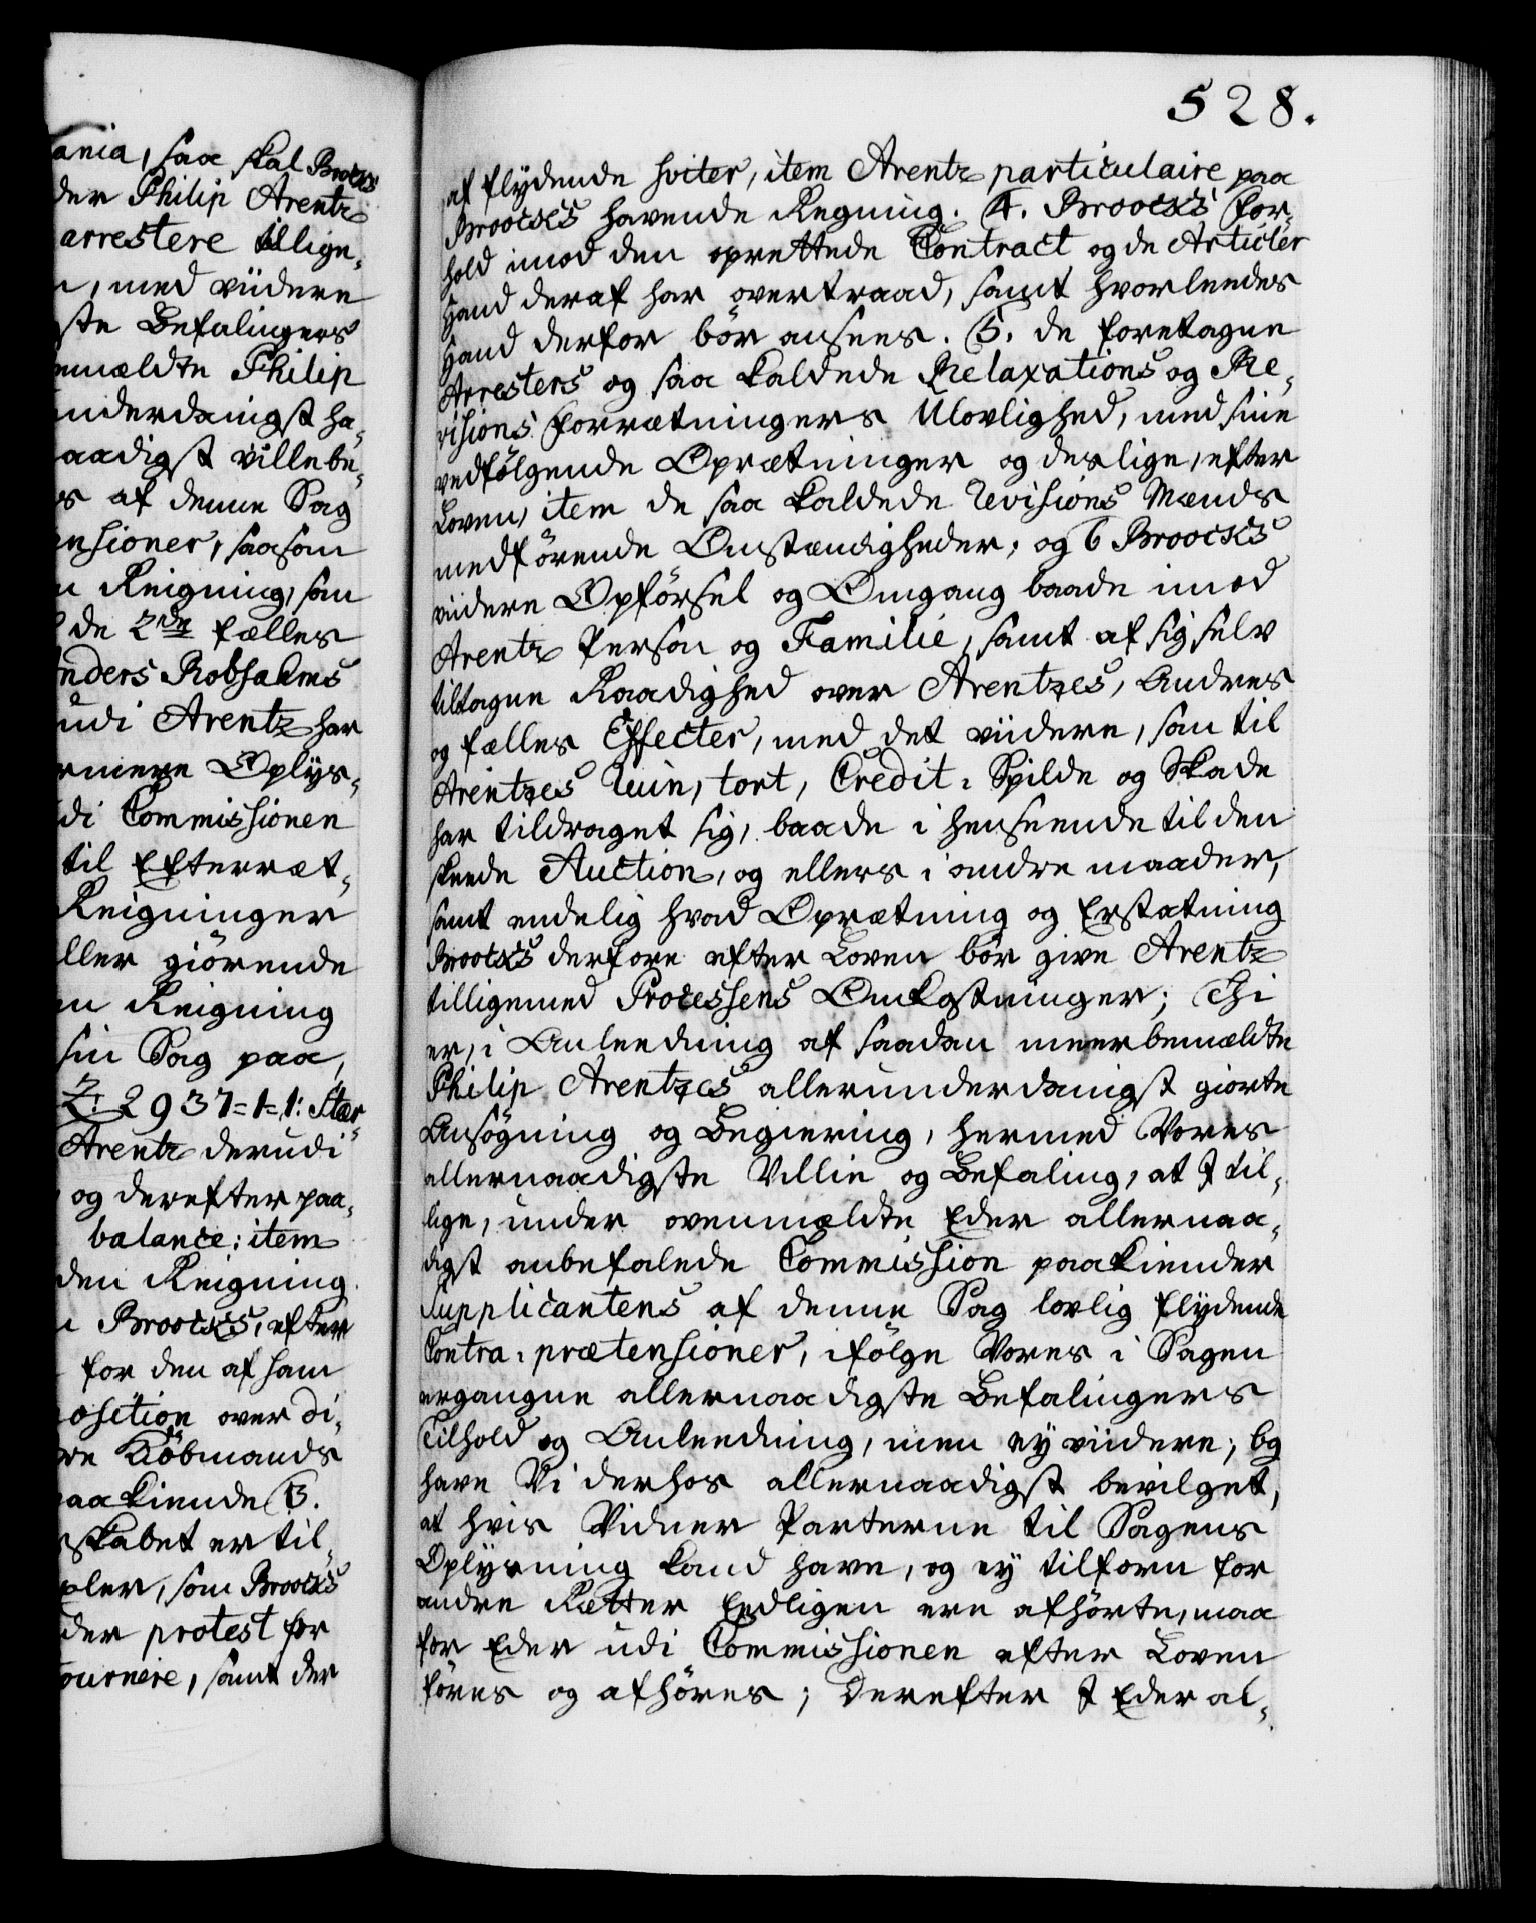 ania, saa skal Broocks
der Philip Arentz
arrestere tillige,
, med viidere
ste Befalingers
nmældte Philip
underdanigst ha,
aadigst ville be,
s af denne Sag
ensioner, saasom
n Reigning, som
de 2de fælles
Anders Robsahms
udi Arentz har
ermere Oplys,
di Commissionen
til Efterræt,
Reigninger
ller giörende
n Reigning
sin Sag paa,
2937=1=1: Stær
Arentz derudi
og derefter paa,
balance; item
den Reigning
Broocks, efter
for den af ham
osition over di,
re Kiöbmands
paakiende (3.
skabet er til,
pler, som Broocks
der protest for
tournere, samt der
528.
af flydende sviter, item Arentz particulaire paa
Broocks's havende Regning. (4. Broocks's For,
hold imod den oprettede Contract og de Articler
Hand deraf har overtraad, samt hvorleedes
Hand derfor bör ansees. (5. de foretagne
Arresters og saa kaldede Relaxations og Re,
visions Forrætningers Ulovlighed, med sine
vedfölgende Oprætninger og deslige, efter
Loven, item de saa kaldede Revisions Mænds
medförende Omstændigheder, og 6 Broocks's
viidere Opförsel og Omgang baade imod
Arentz Person og Familie, samt af sig selv
tiltagne Raadighed over Arentzes, Andres
og fælles Effecter, med det viidere, som til
Arentzes Ruin, tort, Credit= Spilde og Skade
har tildraget sig, baade i henseende til den
skeede Auction, og ellers i andre maader,
samt endelig hvad Oprætning og Erstatning
Broocks derfore efter Loven bör give Arentz
tilligemed Processens Omkostninger; Thi
er, i Anleedning af saadan meerbemældte
Philip Arentzes allerunderdanigst giorte
Ansögning og Begiering, hermed Vores
allernaadigste Villie og Befaling, at I til,
lige, under ovenmældte Eder allernaa,
digst anbefalede Commission paakiender
Supplicantens af denne Sag lovlig flydende
Contra= prætensioner, ifölge Vores i Sagen
ergangne allernaadigste Befalingers
Tilhold og Anleedning, men ey viidere; Og
have Vi derhos allernaadigst bevilget,
at hvis Vidner Parterne til Sagens
Oplysning kand have, og ey tilforn for
andre Retter Eedligen ere afhörte, maa
for Eder udi Commissionen efter Loven
föres og afhöres; Derefter I Eder al,